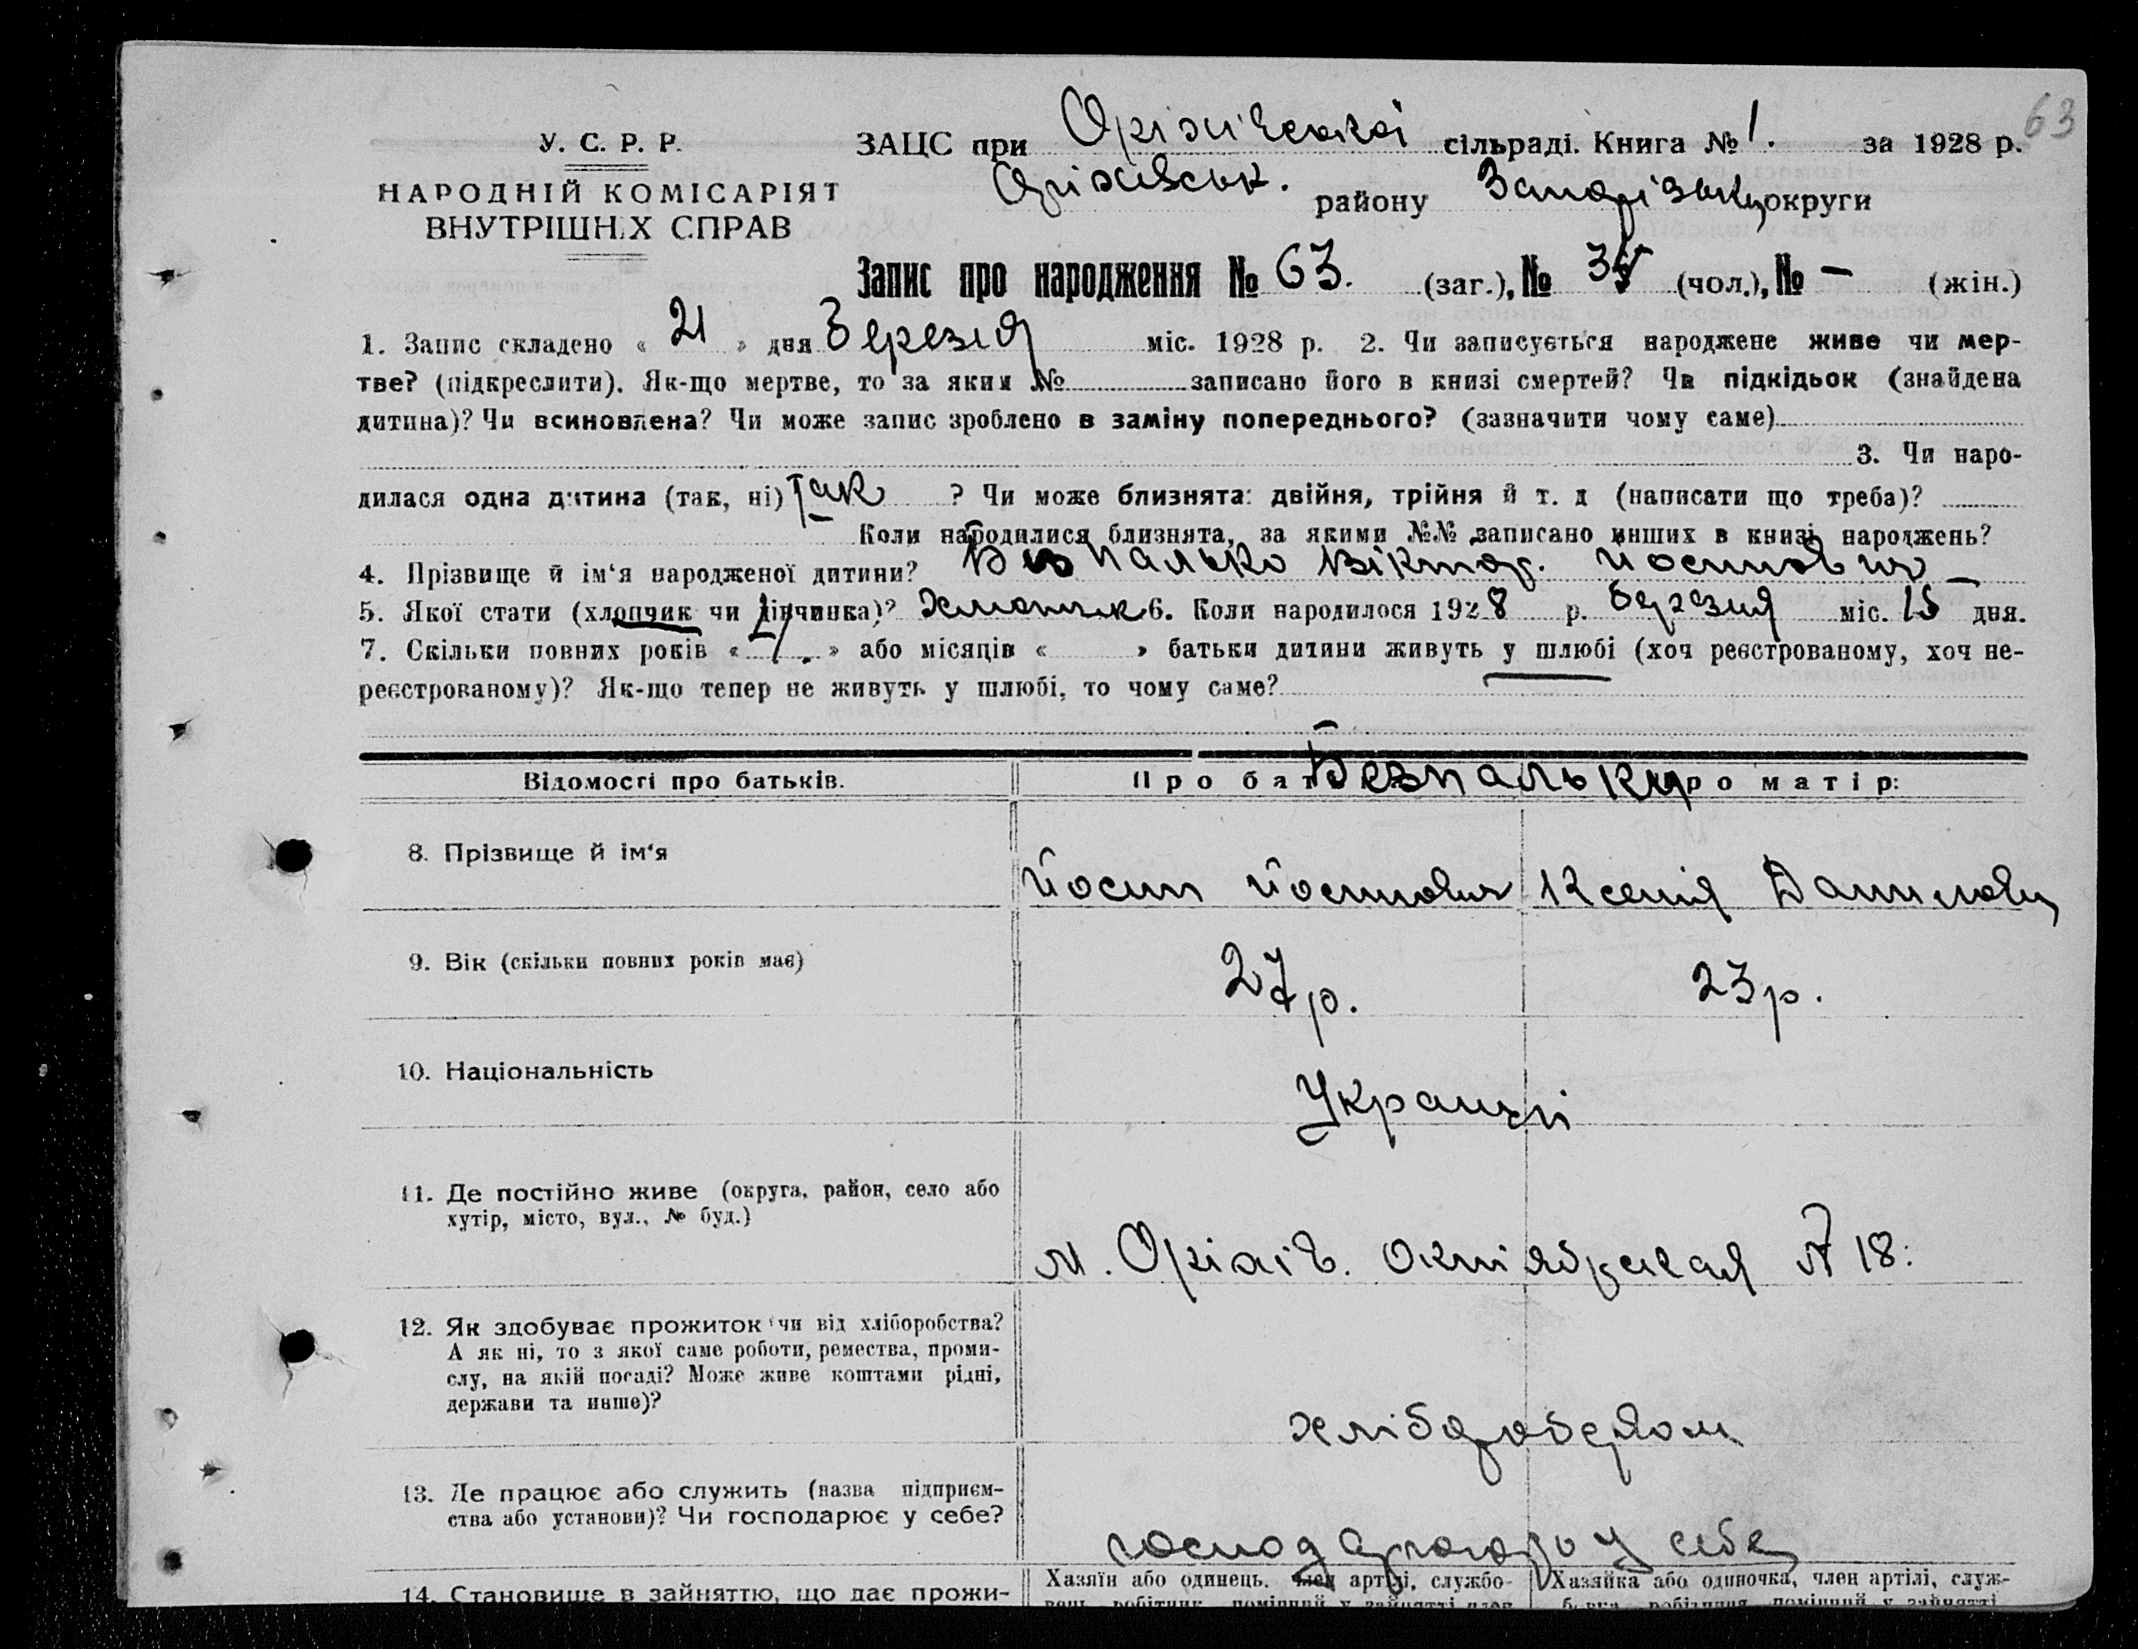 63
У. С. Р. Р.
НАРОДНІЙ КОМІСАРІЯТ
ВНУТРІШНіХ СПРАВ
ЗАЦС при Оріхівській сільраді. Книга № 1. за 1928 р.
Оріхівськ. району Запорізьку округи
Запис про народження № 63. (заг.), № (чол.), № – (жін.)
1. Запис складено « 21 » дня Березня міс. 1928 р. 2. Чи записується народжене живе чи мер-
тве? (підкреслити). Як-що мертве, то за яким № записано його в книзі смертей? Чи підкідьок (знайдена
дитина)? Чи всиновлена? Чи може запис зроблено в заміну попереднього? (зазначити чому саме)
3. Чи наро-
дилася одна дитина (так, ні) Так ? Чи може близнята: двійня, трійня й т. д (написати що треба)?
Коли народилися близнята, за якими №№ записано инших в книзі народжень?
4. Прізвище й ім‘я народженої дитини? Безпалько Віктор. Йосипович
5. Якої стати (хлопчик чи дівчинка)? Хлопчик 6. Коли народилось 1928 р. березня міс. 15 дня.
7. Скільки повних років « » або місяців « » батьки дитини живуть у шлюбі (хоч реєстрованому, хоч не-
реєстрованому)? Як-що тепер не живуть у шлюбі, то чому саме?
Відомості про батьків. Про бат Безпальки ро матір:
8. Прізвище й ім‘я Йосип Йосипович Ксенія Даниловн
9. Вік (скільки повних років має) 27 р. 23 р.
10. Національність Українці
11. Де постійно живе (округа, район, село або
хутір, місто, вул., № буд.)
м. Оріхів. Октябрская № 18.
12. Як здобуває прожиток чи від хліборобства?
А як ні, то з якої саме роботи, ремества, проми-
слу, на якій посаді? Може живе коштами рідні,
держави та инше)?
хліборобством
13. Де працює або служить (назва підприєм-
ства або установи)? Чи господарює у себе?
господарюють у себе
14. Становище в зайняттю, що дає прожи- Хазяїн або одинець. член артілі, службо- Хазяйка або одиночка, член артілі, служ-